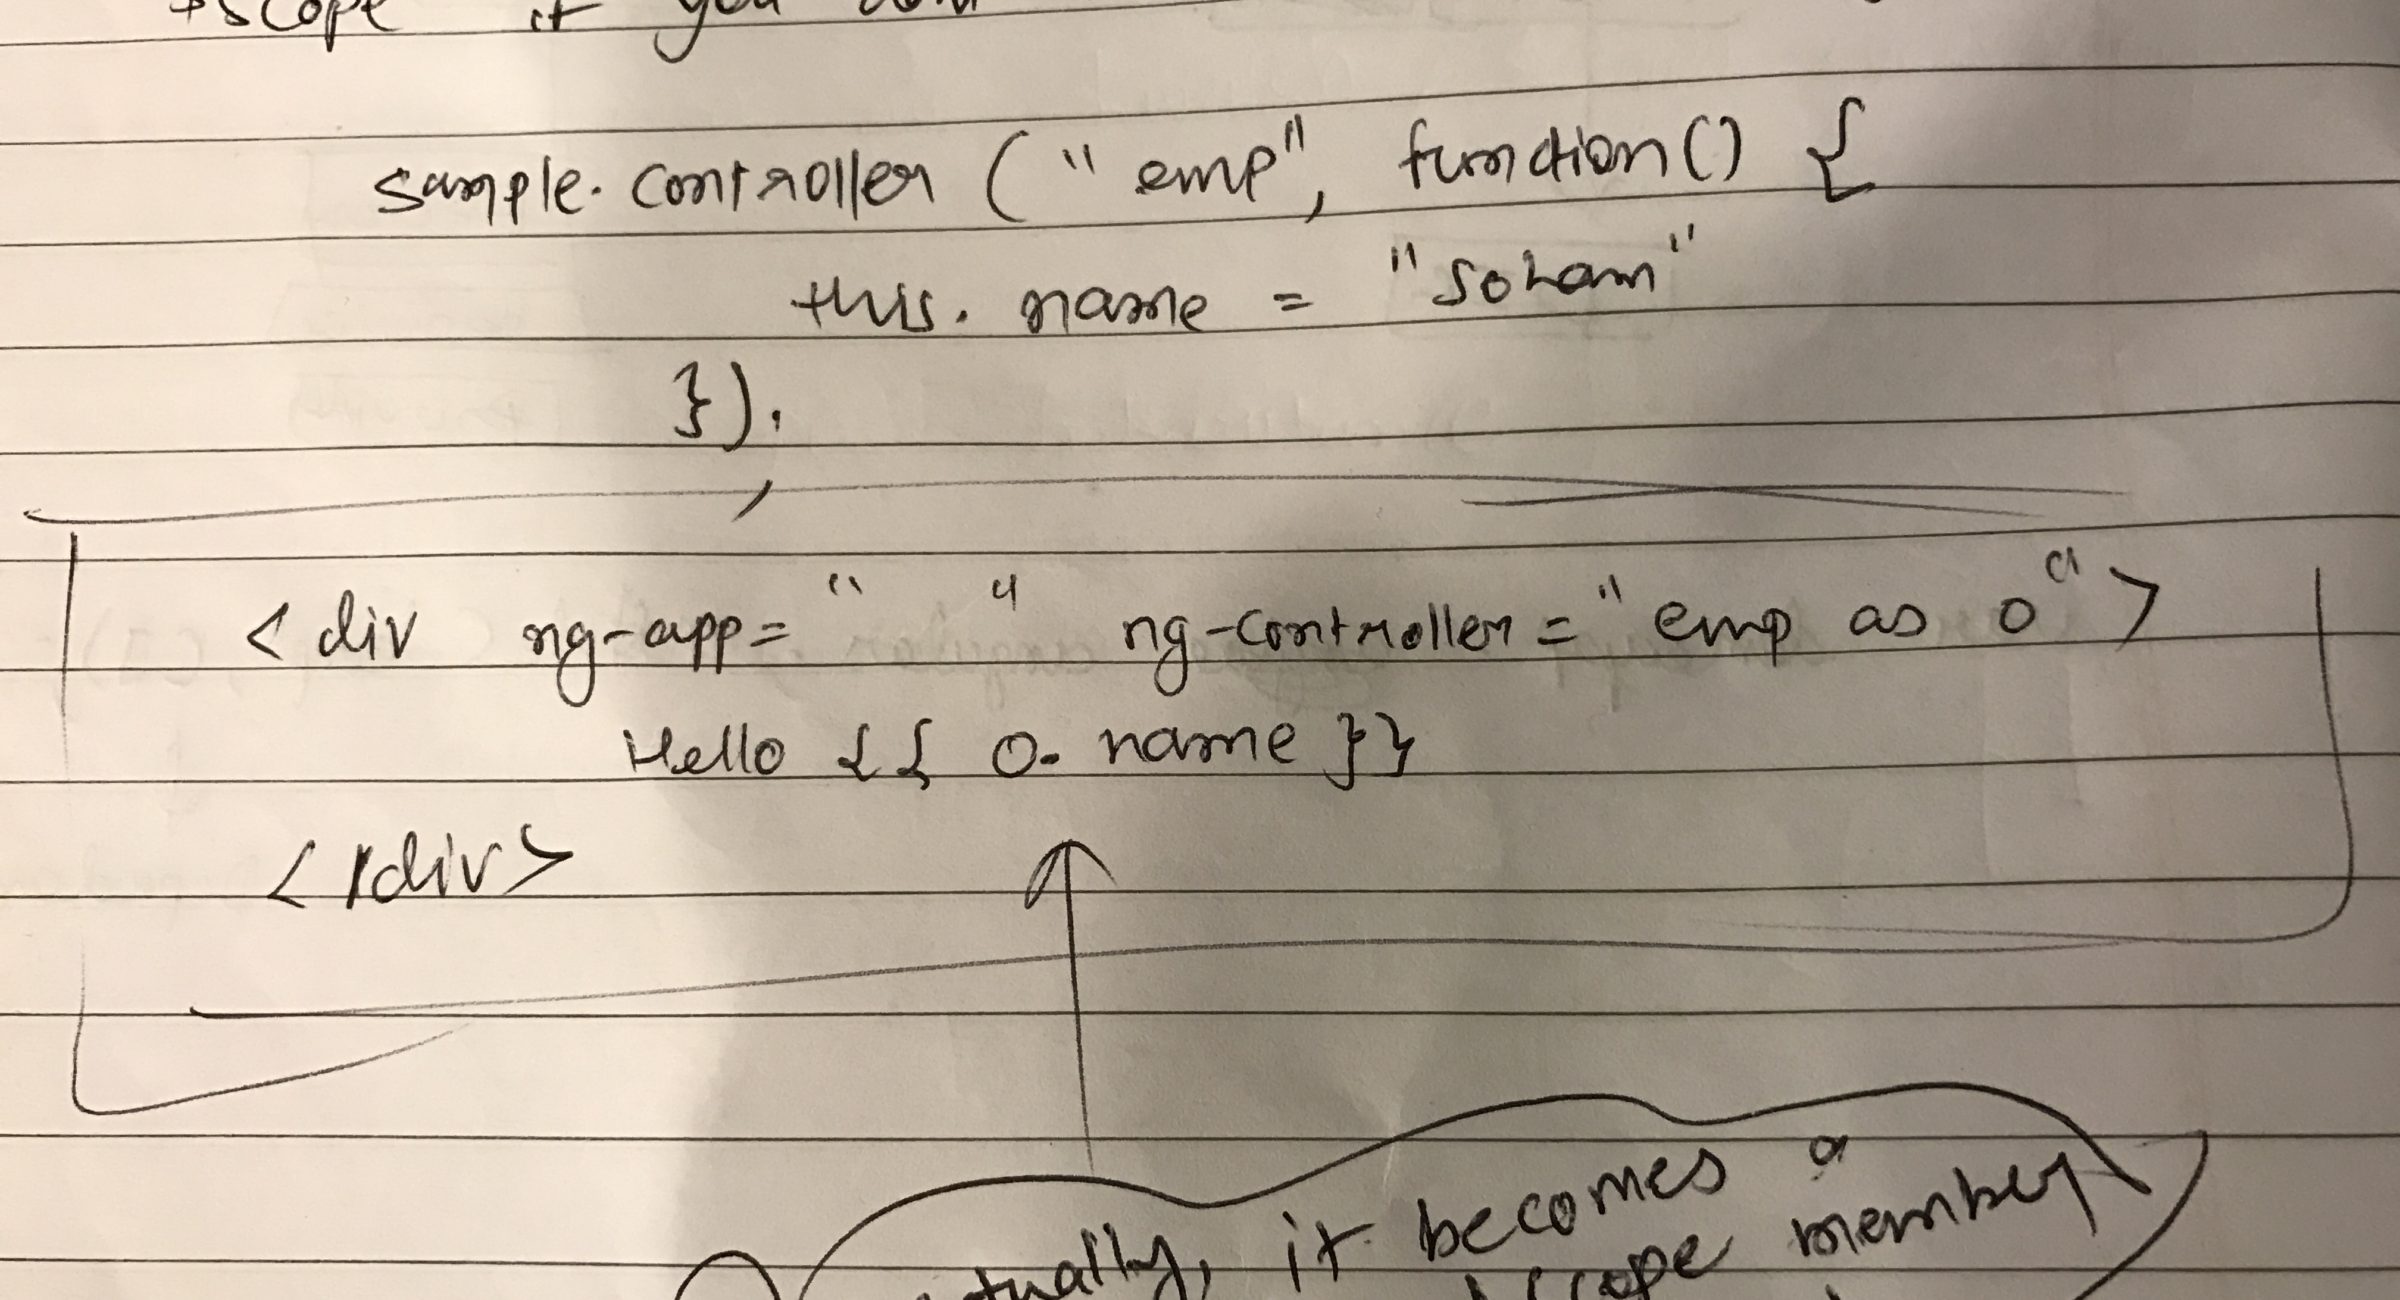 $scope if you don
sample.controller ("emp", function() {
this.name = "Soham"
});
<div ng-app=" " ng-controller="emp as o">
Hello {{ o.name }}
</div>
it becomes a
scope member